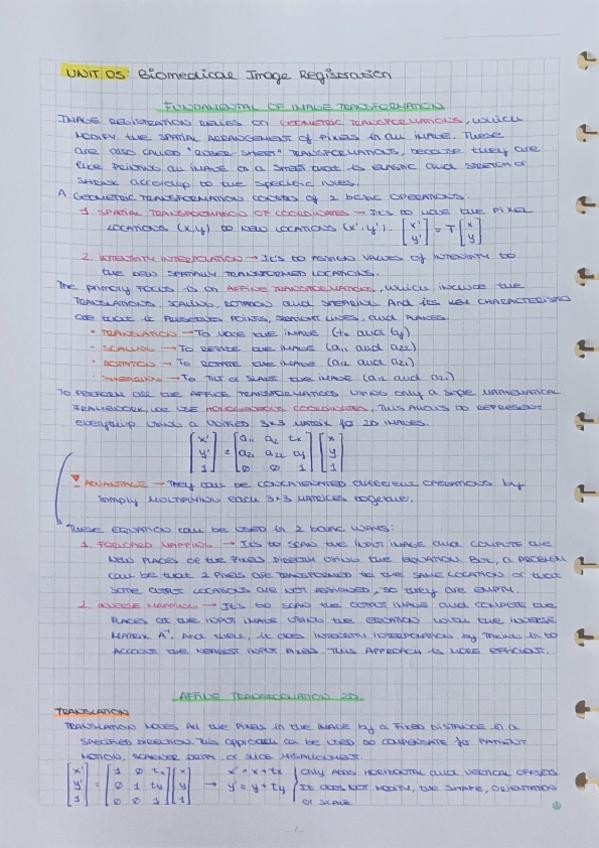 UNIT 05: Biomedical Image Registration
FUNDAMENTAL OF IMAGE TRANSFORMATION
IMAGE REGISTRATION RELIES ON GEOMETRIC TRANSFORMATIONS, which
MODIFY the SPATIAL ARRANGEMENT of PIXELS in an IMAGE. These
are also called "RUBBER SHEET" TRANSFORMATIONS, because they are
like PRINTING an IMAGE on a SHEET that is ELASTIC and STRETCH or
SHRINK according to the specific rules.
A GEOMETRIC TRANSFORMATION CONSISTS OF 2 basic OPERATIONS:
1. SPATIAL TRANSFORMATION OF COORDINATES → It's to MOVE the PIXEL
LOCATIONS (x,y) to new LOCATIONS (x',y'). [x' y'] = T [x y]
2. INTENSITY INTERPOLATION → It's to ASSIGN VALUES OF INTENSITY to
the new SPATIALLY TRANSFORMED LOCATIONS.
The primary FOCUS is on AFFINE TRANSFORMATIONS, which include the
TRANSLATIONS, SCALING, ROTATION and SHEARING. And its key CHARACTERISTICS
are that it PRESERVES POINTS, STRAIGHT LINES, and PLANES.
• TRANSLATION → To MOVE the IMAGE (tx and ty)
• SCALING → To RESIZE the IMAGE (a11 and a22)
• ROTATION → To ROTATE the IMAGE (a12 and a21)
• SHEARING → To TILT or SLANT the IMAGE (a12 and a21)
To PERFORM all the AFFINE TRANSFORMATIONS USING only a single MATHEMATICAL
FRAMEWORK, we USE HOMOGENEOUS COORDINATES, This ALLOWS to REPRESENT
everything USING a UNIFIED 3x3 MATRIX for 2D IMAGES.
[x' y' 1] = [a11 a12 tx a21 a22 ty 0 0 1] [x y 1]
ADVANTAGE → They can be CONCATENATED different OPERATIONS by
simply MULTIPLYING each 3x3 MATRICES together.
These EQUATION can be USED in 2 basic WAYS:
1. FORWARD MAPPING → It's to SCAN the INPUT IMAGE and COMPUTE the
NEW PLACES of the PIXELS DIRECTLY USING the EQUATION. But, a PROBLEM
can be that 2 PIXELS are TRANSFORMED to the SAME LOCATION or that
SOME OUTPUT LOCATIONS are NOT ASSIGNED, so they are EMPTY.
2. INVERSE MAPPING → It's to SCAN the OUTPUT IMAGE and COMPUTE the
PLACES at the INPUT IMAGE USING the EQUATION with the INVERSE
MATRIX A⁻¹. And then, it does INTENSITY INTERPOLATION by TAKING into
ACCOUNT the NEAREST INPUT PIXEL. THIS APPROACH is MORE EFFICIENT.
AFFINE TRANSFORMATION 2D
TRANSLATION
TRANSLATION MOVES All the PIXELS in the IMAGE by a FIXED DISTANCE in a
SPECIFIED DIRECTION. This approach can be USED to COMPENSATE for PATIENT
MOTION, SCANNER DRIFT, or SLICE MISALIGNMENT.
[x' y' 1] = [1 0 tx 0 1 ty 0 0 1] [x y 1] → x' = x + tx y' = y + ty
Only ADDS HORIZONTAL and VERTICAL OFFSETS
It DOES NOT MODIFY, the SHAPE, ORIENTATION
or SCALE